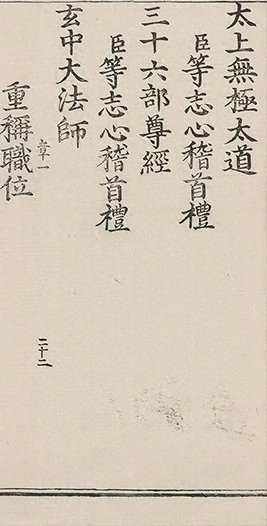 太上無極太道
臣等志心稽首禮
三十六部尊經
臣等志心稽首禮
玄中大法師
重稱職位
二十二